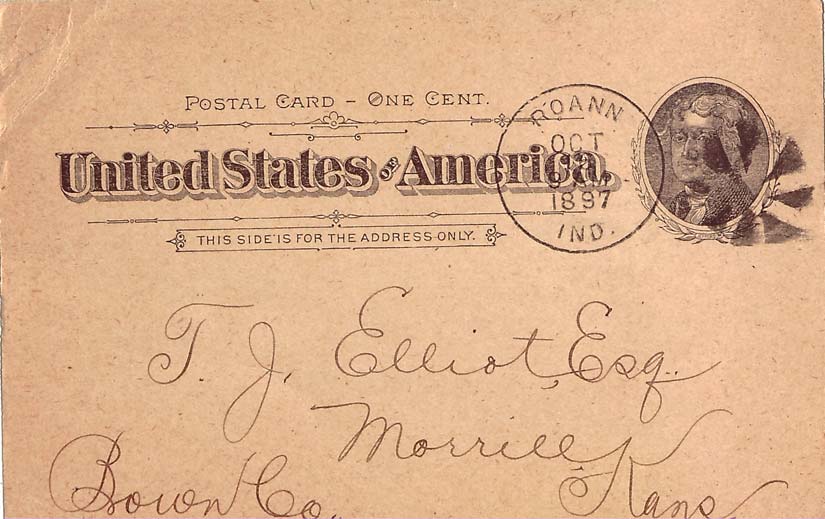 POSTAL CARD - ONE CENT.
United States of America.
THIS SIDE IS FOR THE ADDRESS ONLY.
ROANN
OCT
1897
IND.
T. J. Elliot, Esq.
Morrill
Brown Co. Kans